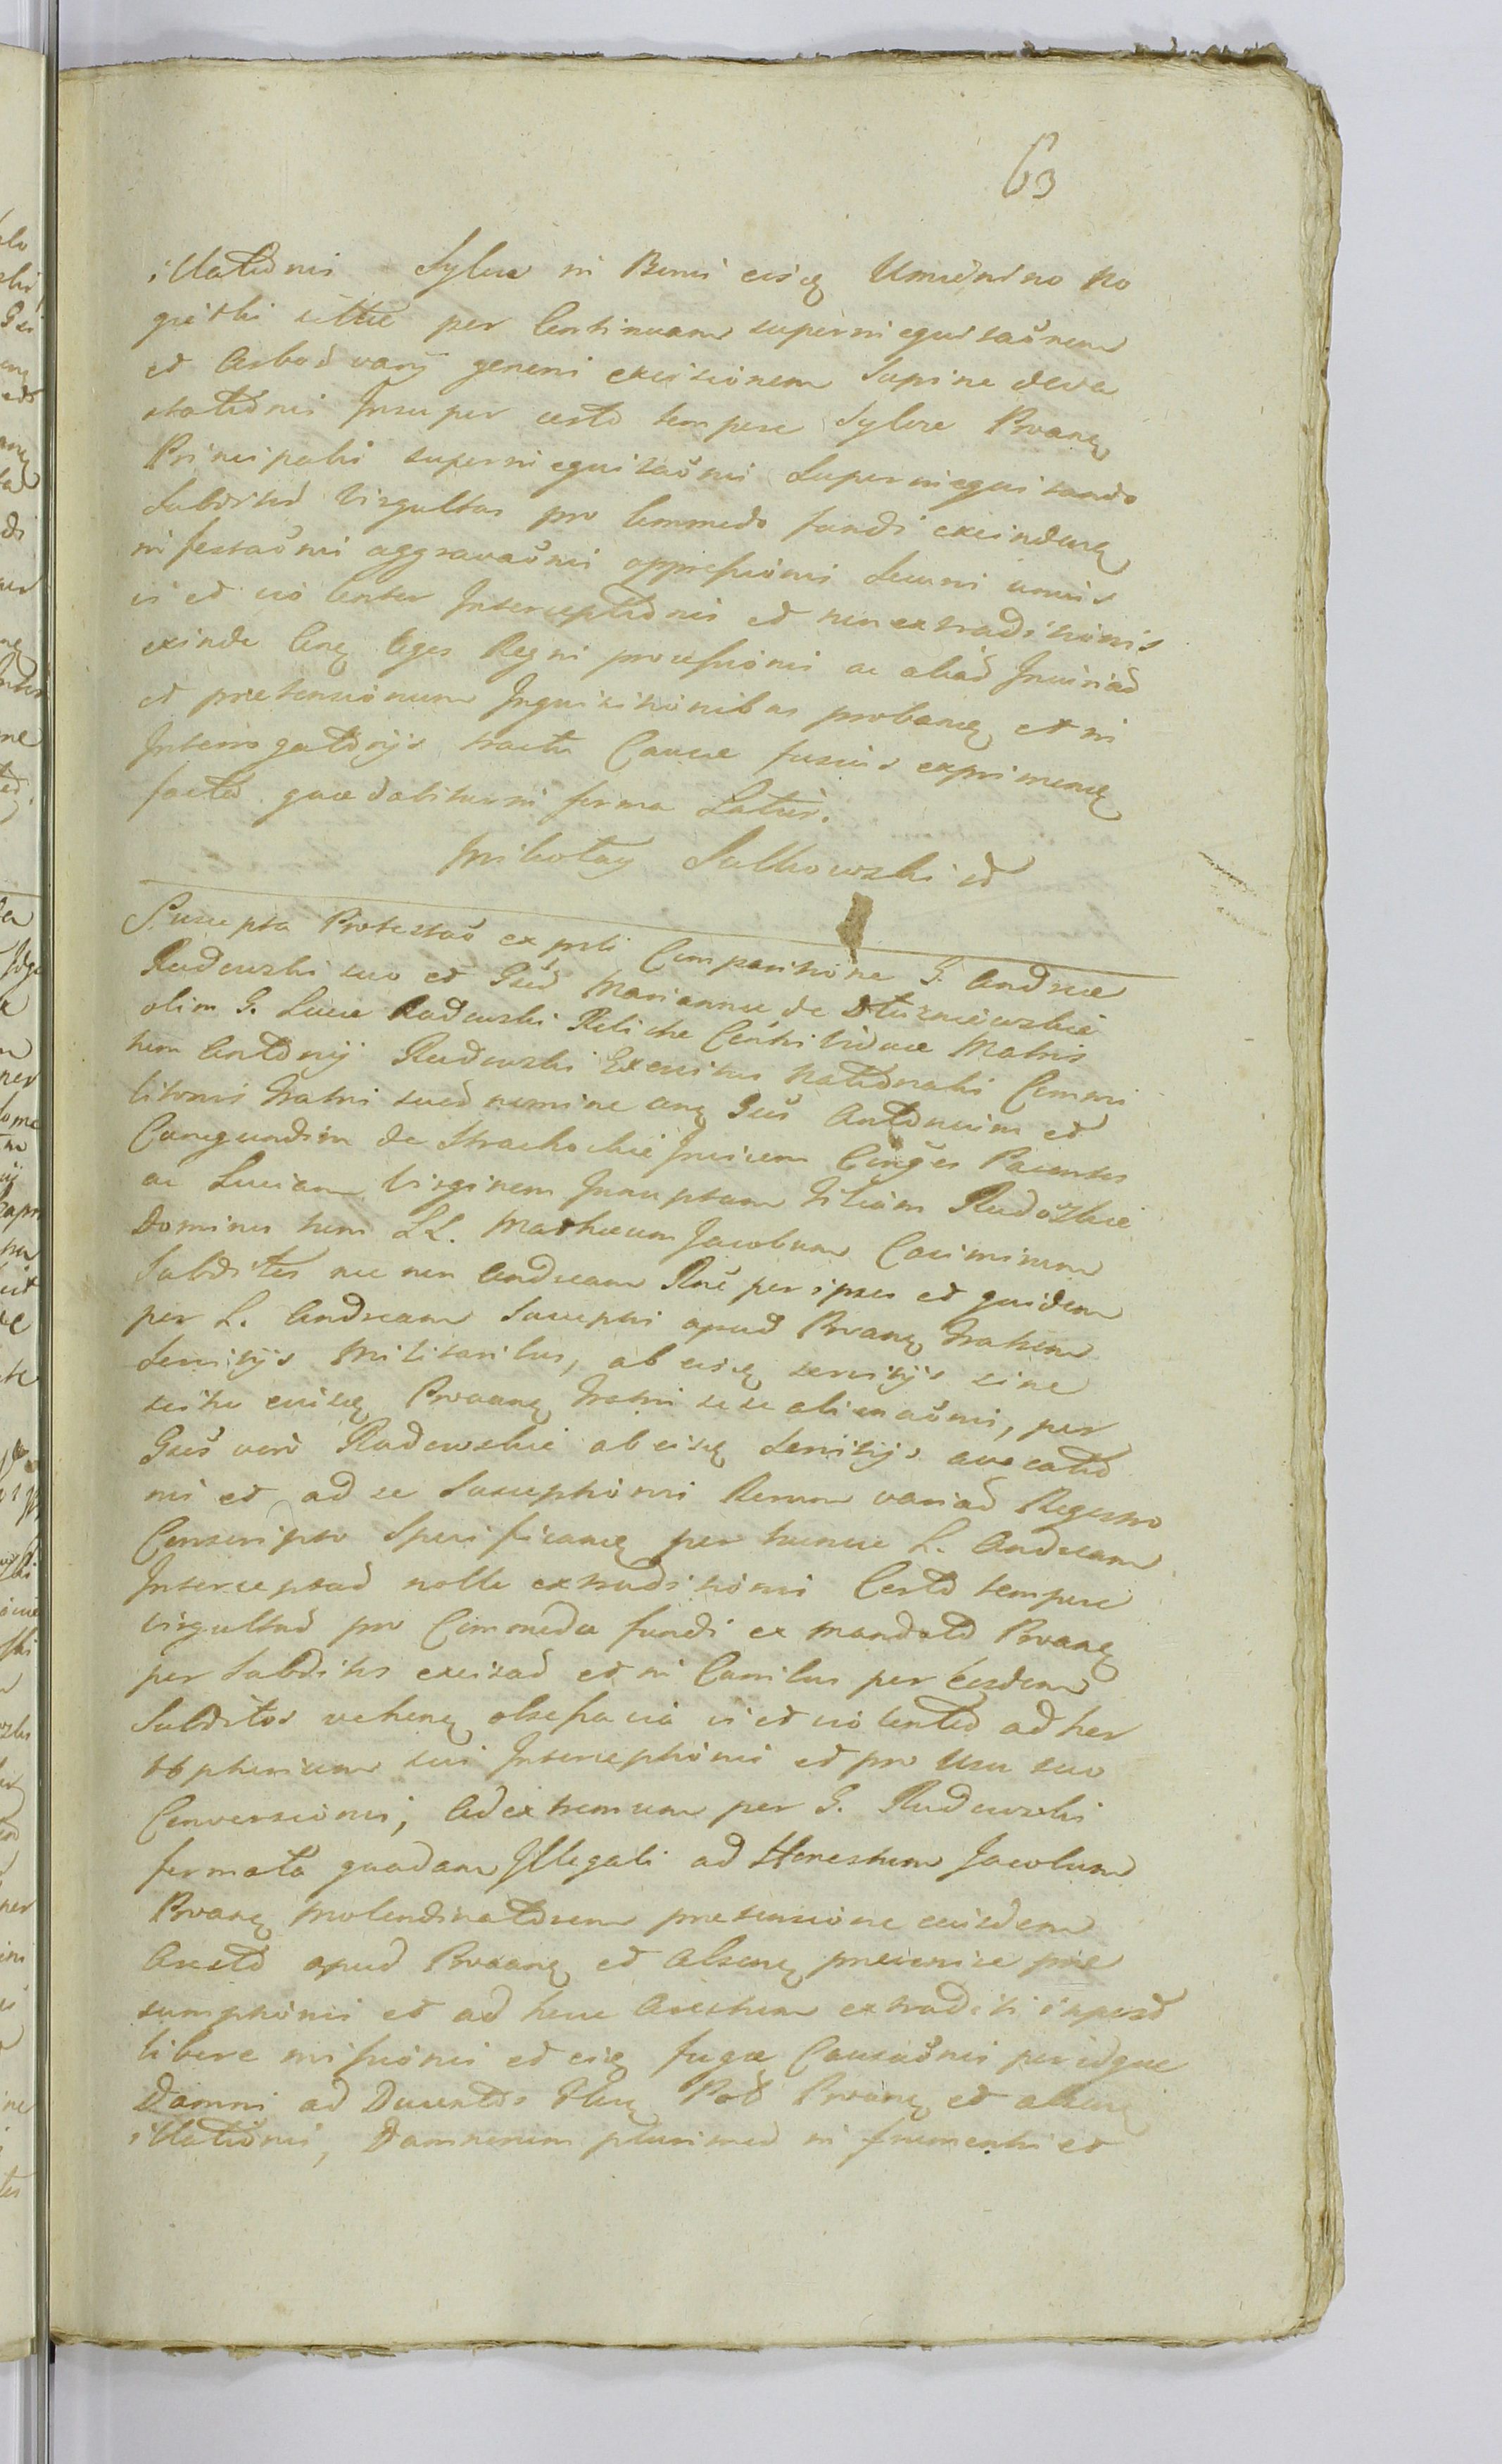 63
illationis Sylvae in Bonis eisq
gietki sittae per Continuam superinequitaonem
et Arbor varij generis excisionem Supine deva
stationis Insuper certo tempore Sylvae Proanq
Principalis superinequitaonis Superinequitando
Subditor Virgultas pro Commodo fundi exeindenq
infestaonis aggravaonis oppressionis Securis unius
vi et violenter Interceptionis et non extraditionis
exinde Conq leges Regni processionis ac aliar Iniuriar
et praetensionum Inquisitionibus probanq et in
Interrogatorijs tractu Causae fusius exprimenq
facto quae dabitur in forma Latius.
Mikołay Sutkowski
Suscepta Protestao ex prti Comparitione G. Andreae
Radewski suo et Gsae Mariannae de Dłuzniewskie
olim G. Lucae Radewski Relictae Consti Viduae Matris
tum Antonij Radewski Exercitus Nationalis Commi
litonis Fratris suor nomine anq Gsos Antonium et
Cunegundim de Strachockie Invicem Conges Parentes
ac Luciam Virginem Innuptam Filiam Radoskie
Dominos tum LL. Mathaeum Jacobum Casimirum
Subditos nec non Andream Rne per ipsos et quidem
per L. Andream Suscepti apud Proanq Fratrem
Servitijs Militaribus, ab eisq servitijs sine
scitu eiusq Proanq Fratris sese alienaonis, per
Gsos vero Radewskie ab eisq Servitijs avocatio
nis et ad se Susceptionis Rerum variar Regestro
Conscripto Specificanq per hunce L. Andream
Interceptar nolle extraditionis Certo tempore
virgultar pro Commodo fundi ex mandato Proanq
per Subditos excisar et in Curribus per eosdem
Subditos vehenq obsessa via vi et violento ad her
ptorium sui Interceptionis et pro Usu suo
Conversionis, Ad extremum per G. Radewski
formata quadam Illegali ad Honestum Jacobum
Proanq Molendinatorem praetensione eiusdem
Aresto apud Proanq et Absenq
sumptionis et ad hunc Arestum extraditi
libere missionis et eisq fugae Causaonis per idque
Damni ad Ducentos Flnq Pol Proanq et absenq
illationis, Damnorum plurimor in frumentis et